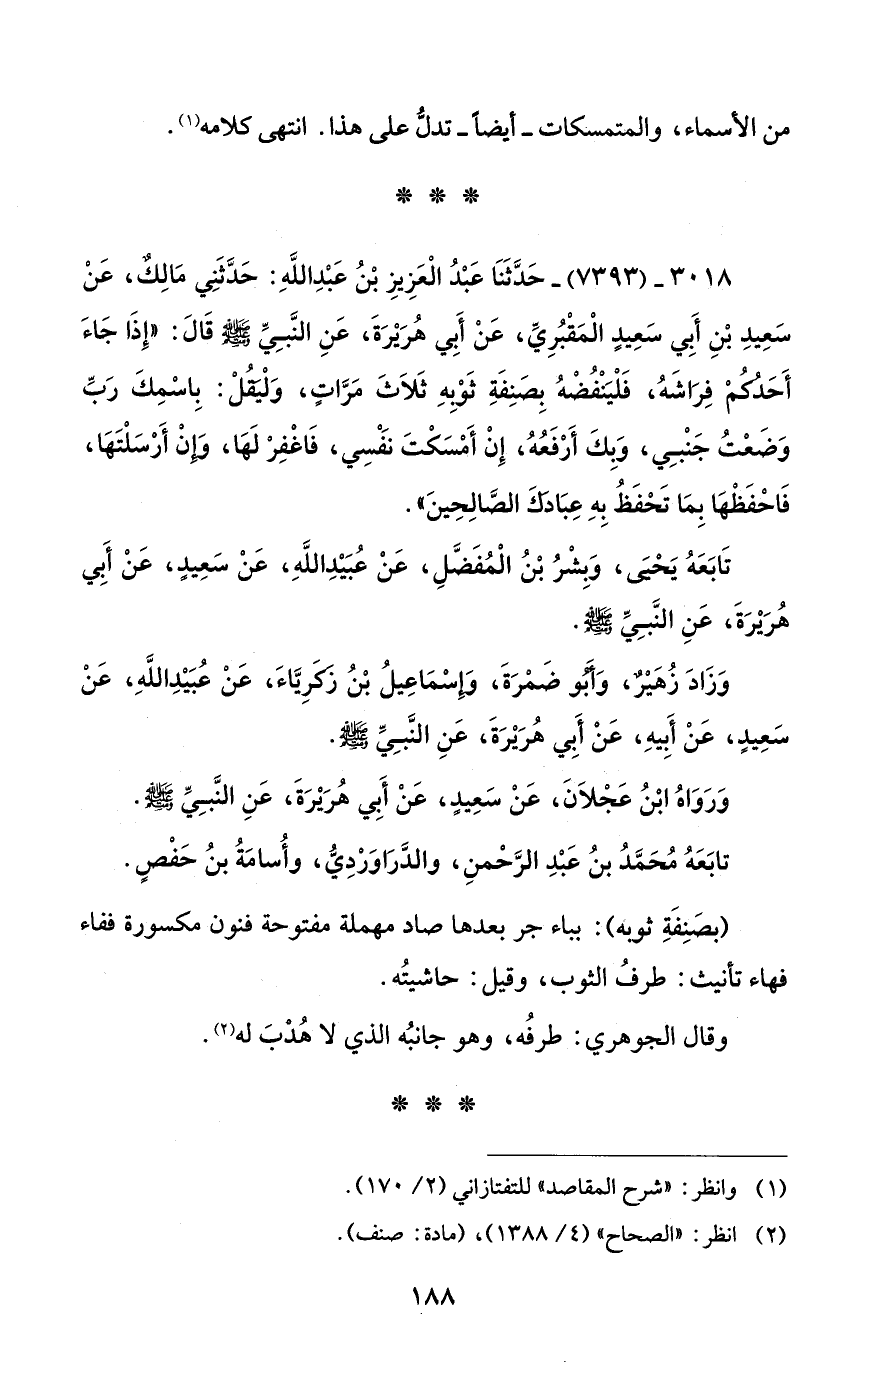 من الأسماء، والمتمسكات ـ أيضاً ـ تدلُّ على هذا. انتهى كلامه(١).
* * *
٣٠١٨ ـ (٧٣٩٣) ـ حَدَّثَنَا عَبْدُ الْعَزِيزِ بْنُ عَبْدِاللَّهِ: حَدَّثَنِي مَالِكٌ، عَنْ
سَعِيدِ بْنِ أَبِي سَعِيدٍ الْمَقْبُرِيِّ، عَنْ أَبِي هُرَيْرَةَ، عَنِ النَّبِيِّ ﷺ قَالَ: «إِذَا جَاءَ
أَحَدُكُمْ فِرَاشَهُ، فَلْيَنْفُضْهُ بِصَنِفَةِ ثَوْبِهِ ثَلَاثَ مَرَّاتٍ، وَلْيَقُلْ: بِاسْمِكَ رَبِّ
وَضَعْتُ جَنْبِي، وَبِكَ أَرْفَعُهُ، إِنْ أَمْسَكْتَ نَفْسِي، فَاغْفِرْ لَهَا، وَإِنْ أَرْسَلْتَهَا،
فَاحْفَظْهَا بِمَا تَحْفَظُ بِهِ عِبَادَكَ الصَّالِحِينَ».
تَابَعَهُ يَحْيَى، وَبِشْرُ بْنُ الْمُفَضَّلِ، عَنْ عُبَيْدِاللَّهِ، عَنْ سَعِيدٍ، عَنْ أَبِي
هُرَيْرَةَ، عَنِ النَّبِيِّ ﷺ.
وَزَادَ زُهَيْرٌ، وَأَبُو ضَمْرَةَ، وَإِسْمَاعِيلُ بْنُ زَكَرِيَّاءَ، عَنْ عُبَيْدِاللَّهِ، عَنْ
سَعِيدٍ، عَنْ أَبِيهِ، عَنْ أَبِي هُرَيْرَةَ، عَنِ النَّبِيِّ ﷺ.
وَرَوَاهُ ابْنُ عَجْلَانَ، عَنْ سَعِيدٍ، عَنْ أَبِي هُرَيْرَةَ، عَنِ النَّبِيِّ ﷺ.
تابَعَهُ مُحَمَّدُ بنُ عَبْدِ الرَّحْمنِ، والدَّرَاوَرْدِيُّ، وأُسامَةُ بنُ حَفْصٍ.
(بصَنِفَةِ ثوبه): بباء جر بعدها صاد مهملة مفتوحة فنون مكسورة ففاء
فهاء تأنيث: طرفُ الثوب، وقيل: حاشيتُه.
وقال الجوهري: طرفُه، وهو جانبُه الذي لا هُدْبَ له(٢).
* * *
(١) وانظر: «شرح المقاصد» للتفتازاني (٢/ ١٧٠).
(٢) انظر: «الصحاح» (٤/ ١٣٨٨)، (مادة: صنف).
١٨٨